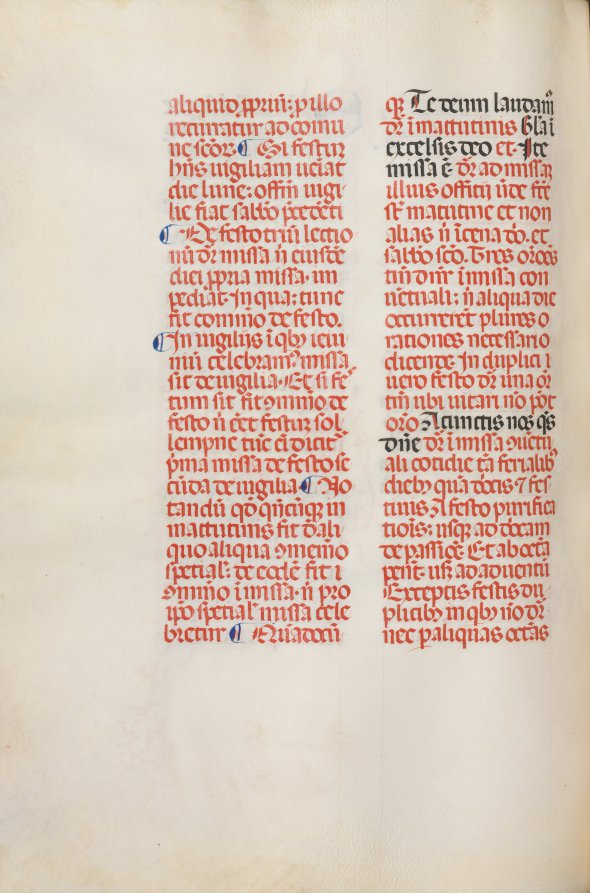 aliquid ꝓpriū: ꝑ illo
recurratur ad cōmu
ne scōꝝ. ¶ Si festuꝝ
hn̄s uigiliam ueīat
die lune: offm̄ uigi
lie fiat sabbo p̄cedēti
¶ De festo triū lectio
nū dr̄ missa n̄ eiusdē
diei ꝓpria missa im
pediat. In qua: tunc
fit commīo de festo.
¶ In uigilijs ī qb9 ieiu
niū celebramꝰ: missa
sit de uigilia. Et si fe
tum sit fit 9memīo de
festo n̄ eēt festuꝝ sol
lempne tūc ei dicit̄
p̄ma missa de festo se
cūda de uigilia ¶ No
tandū qd̓ qn̄cūqꝫ in
mattutinis fit d̄ ali
quo aliqua 9memīo
spetial': de ecclē fit ī
9mīno ī missa. n̄ pro
ip̄o spetial' missa cele
bretur ¶
qꝫ Te deum laudam̄
dr̄ ī mattutinis Gl'a ī
excelsis deo et Ite
missa ē dr̄ ad missaꝫ
illius officij ūde fīt
st̄ matutine et non
alias n̄ ī cena dō. et
sabbo scō. Tres orōes
tm̄ dn̄r ī missa con
uētuali: n̄ aliqua die
occurreret plures o
rationes necessario
dicende. In duplici ī
uero festo dr̄ una or̄
tm̄ ubi uitari nō pōt
orō. A cunctis nos qs̄
dn̄e dr̄ ī missa 9uētu
ali cotidie tā ferialib9
dieb9 quā dōcis ⁊ fes
tiuis
a festo purifica
tiōis: usqꝫ ad dōcam
de passiōe. Et ab octa
pent. usqꝫ ad aduentū
Exceptis festis du
plicib9 in qb9 nō dr̄
nec ꝑ aliquas octās